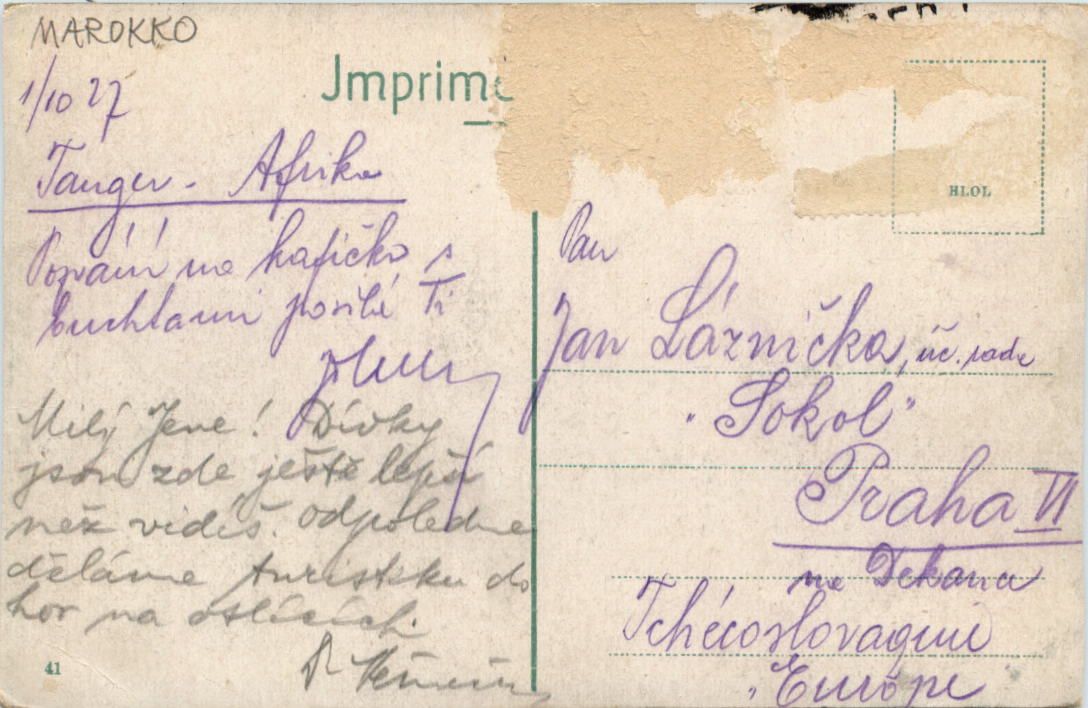 MAROKKO
1/10 27
Imprimé
Tanger - Afrika
Pozvání na kafíčko s
buchtami posílá Ti
Milý Jene! Dívky
jsou zde ještě lepší
než vidíš. Odpoledne
děláme turistiku do
hor na oslících.
41
HLOL
Pan
Jan Láznička, úč. rada
"Sokol"
Praha VI
na Děkance
Tchécoslovaquie
"Európe